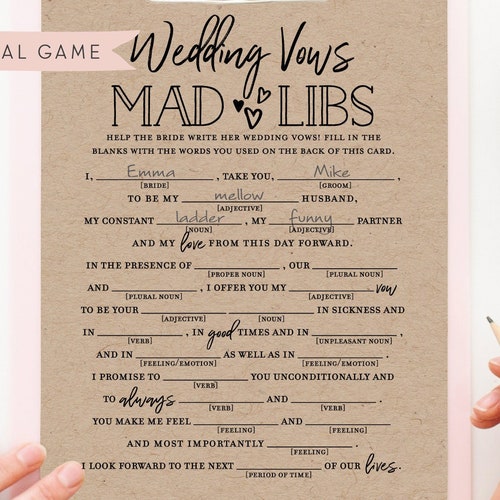 AL GAME
Wedding Vows
MAD LIBS
HELP THE BRIDE WRITE HER WEDDING VOWS! FILL IN THE
BLANKS WITH THE WORDS YOU USED ON THE BACK OF THIS CARD.
I, Emma, TAKE YOU, Mike,
[BRIDE] [GROOM]
TO BE MY mellow HUSBAND,
[ADJECTIVE]
MY CONSTANT ladder, MY funny PARTNER
[NOUN] [ADJECTIVE]
AND MY love FROM THIS DAY FORWARD.
IN THE PRESENCE OF ____, OUR ____
[PROPER NOUN] [PLURAL NOUN]
AND ____, I OFFER YOU MY ____ vow
[PLURAL NOUN] [ADJECTIVE]
TO BE YOUR ____ ____ IN SICKNESS AND
[ADJECTIVE] [NOUN]
IN ____, IN good TIMES AND IN ____,
[VERB] [UNPLEASANT NOUN]
AND IN ____ AS WELL AS IN ____.
[FEELING/EMOTION] [FEELING/EMOTION]
I PROMISE TO ____ YOU UNCONDITIONALLY AND
[VERB]
TO always ____ AND ____.
[VERB] [VERB]
YOU MAKE ME FEEL ____ AND ____
[FEELING] [FEELING]
AND MOST IMPORTANTLY ____.
[FEELING]
I LOOK FORWARD TO THE NEXT ____ OF OUR lives.
[PERIOD OF TIME]